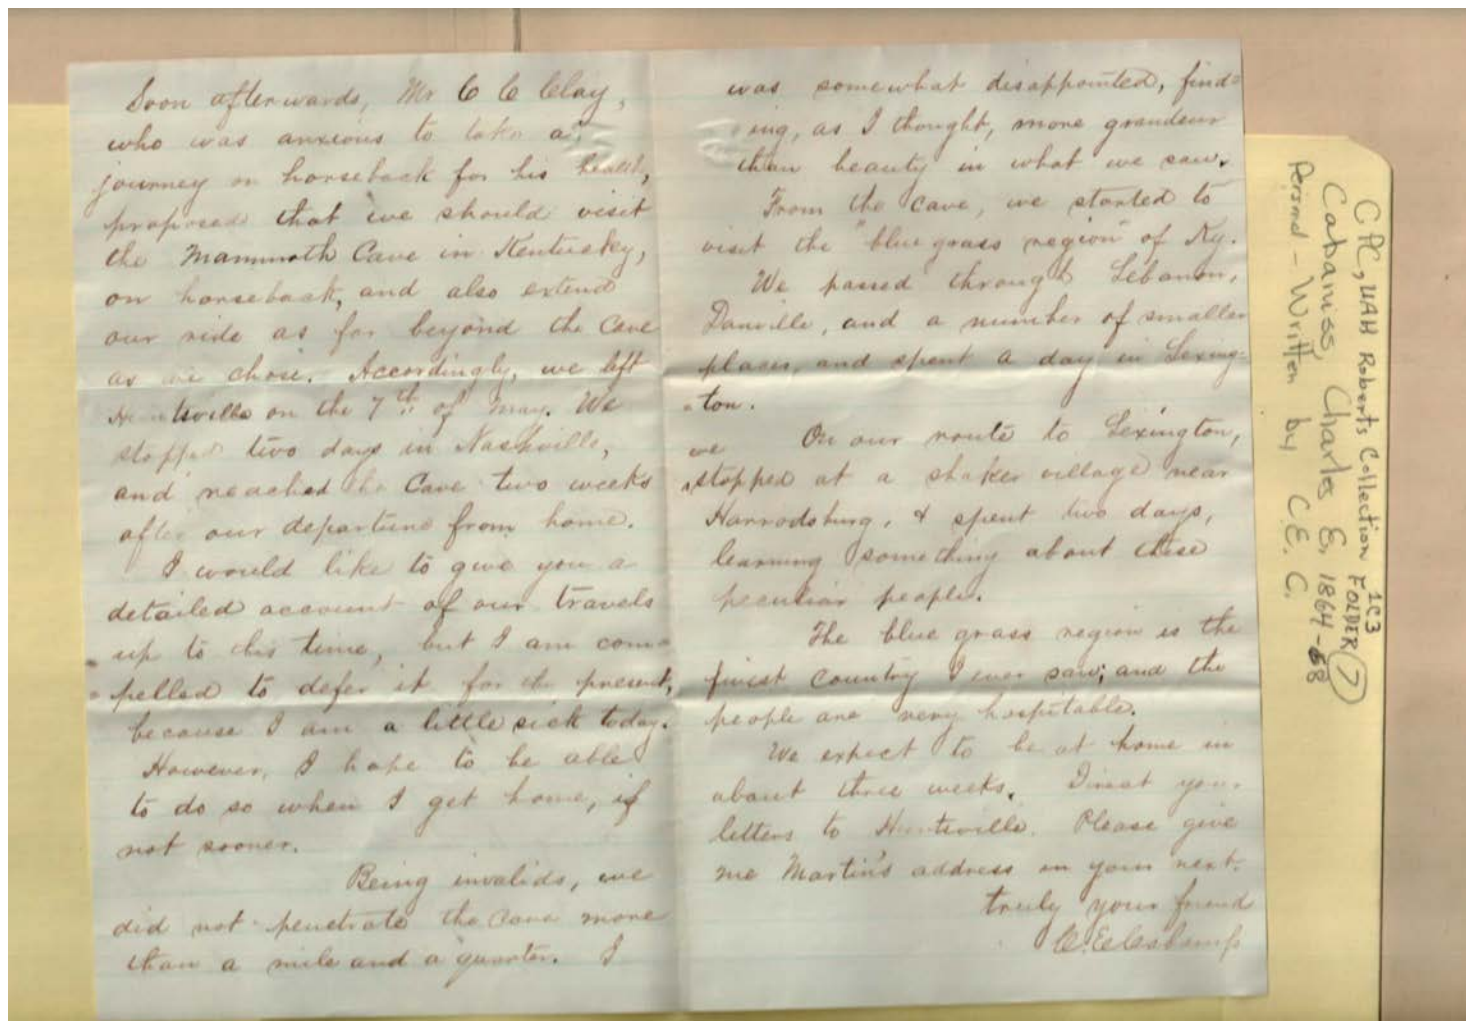 Soon afterwards, Mr C C Clay,
who was anxious to take a
journey on horseback for his health,
proposed that we should visit
the Mammoth Cave in Kentucky,
on horseback, and also extend
our ride as far beyond the Cave
as we chose. Accordingly, we left
Huntsville on the 7th of May. We
stopped two days in Nashville,
and reached the Cave two weeks
after our departure from home.
I would like to give you a
detailed account of our travels
up to this time, but I am com-
-pelled to defer it for the present,
because I am a little sick today.
However, I hope to be able
to do so when I get home, if
not sooner.
Being invalids, we
did not penetrate the Cave more
than a mile and a quarter. I
was somewhat disappointed, find=
ing, as I thought, more grandeur
than beauty in what we saw.
From the Cave, we started to
visit the "blue grass region" of Ky.
We passed through Lebanon,
Danville, and a number of smaller
places, and spent a day in Lexing-
-ton.
On our route to Lexington,
we
stopped at a shaker village near
Harrodsburg, & spent two days,
learning something about these
peculiar people.
The blue grass region is the
finest country I ever saw; and the
people are very hospitable.
We expect to be at home in
about three weeks. Direct your
letters to Huntsville. Please give
me Martin's address in your next.
truly your friend
CPC, UAH Roberts Collection
1C3
FOLDER 7
Cabaniss, Charles E. 1864-88
Personal - Written by C.E.C.